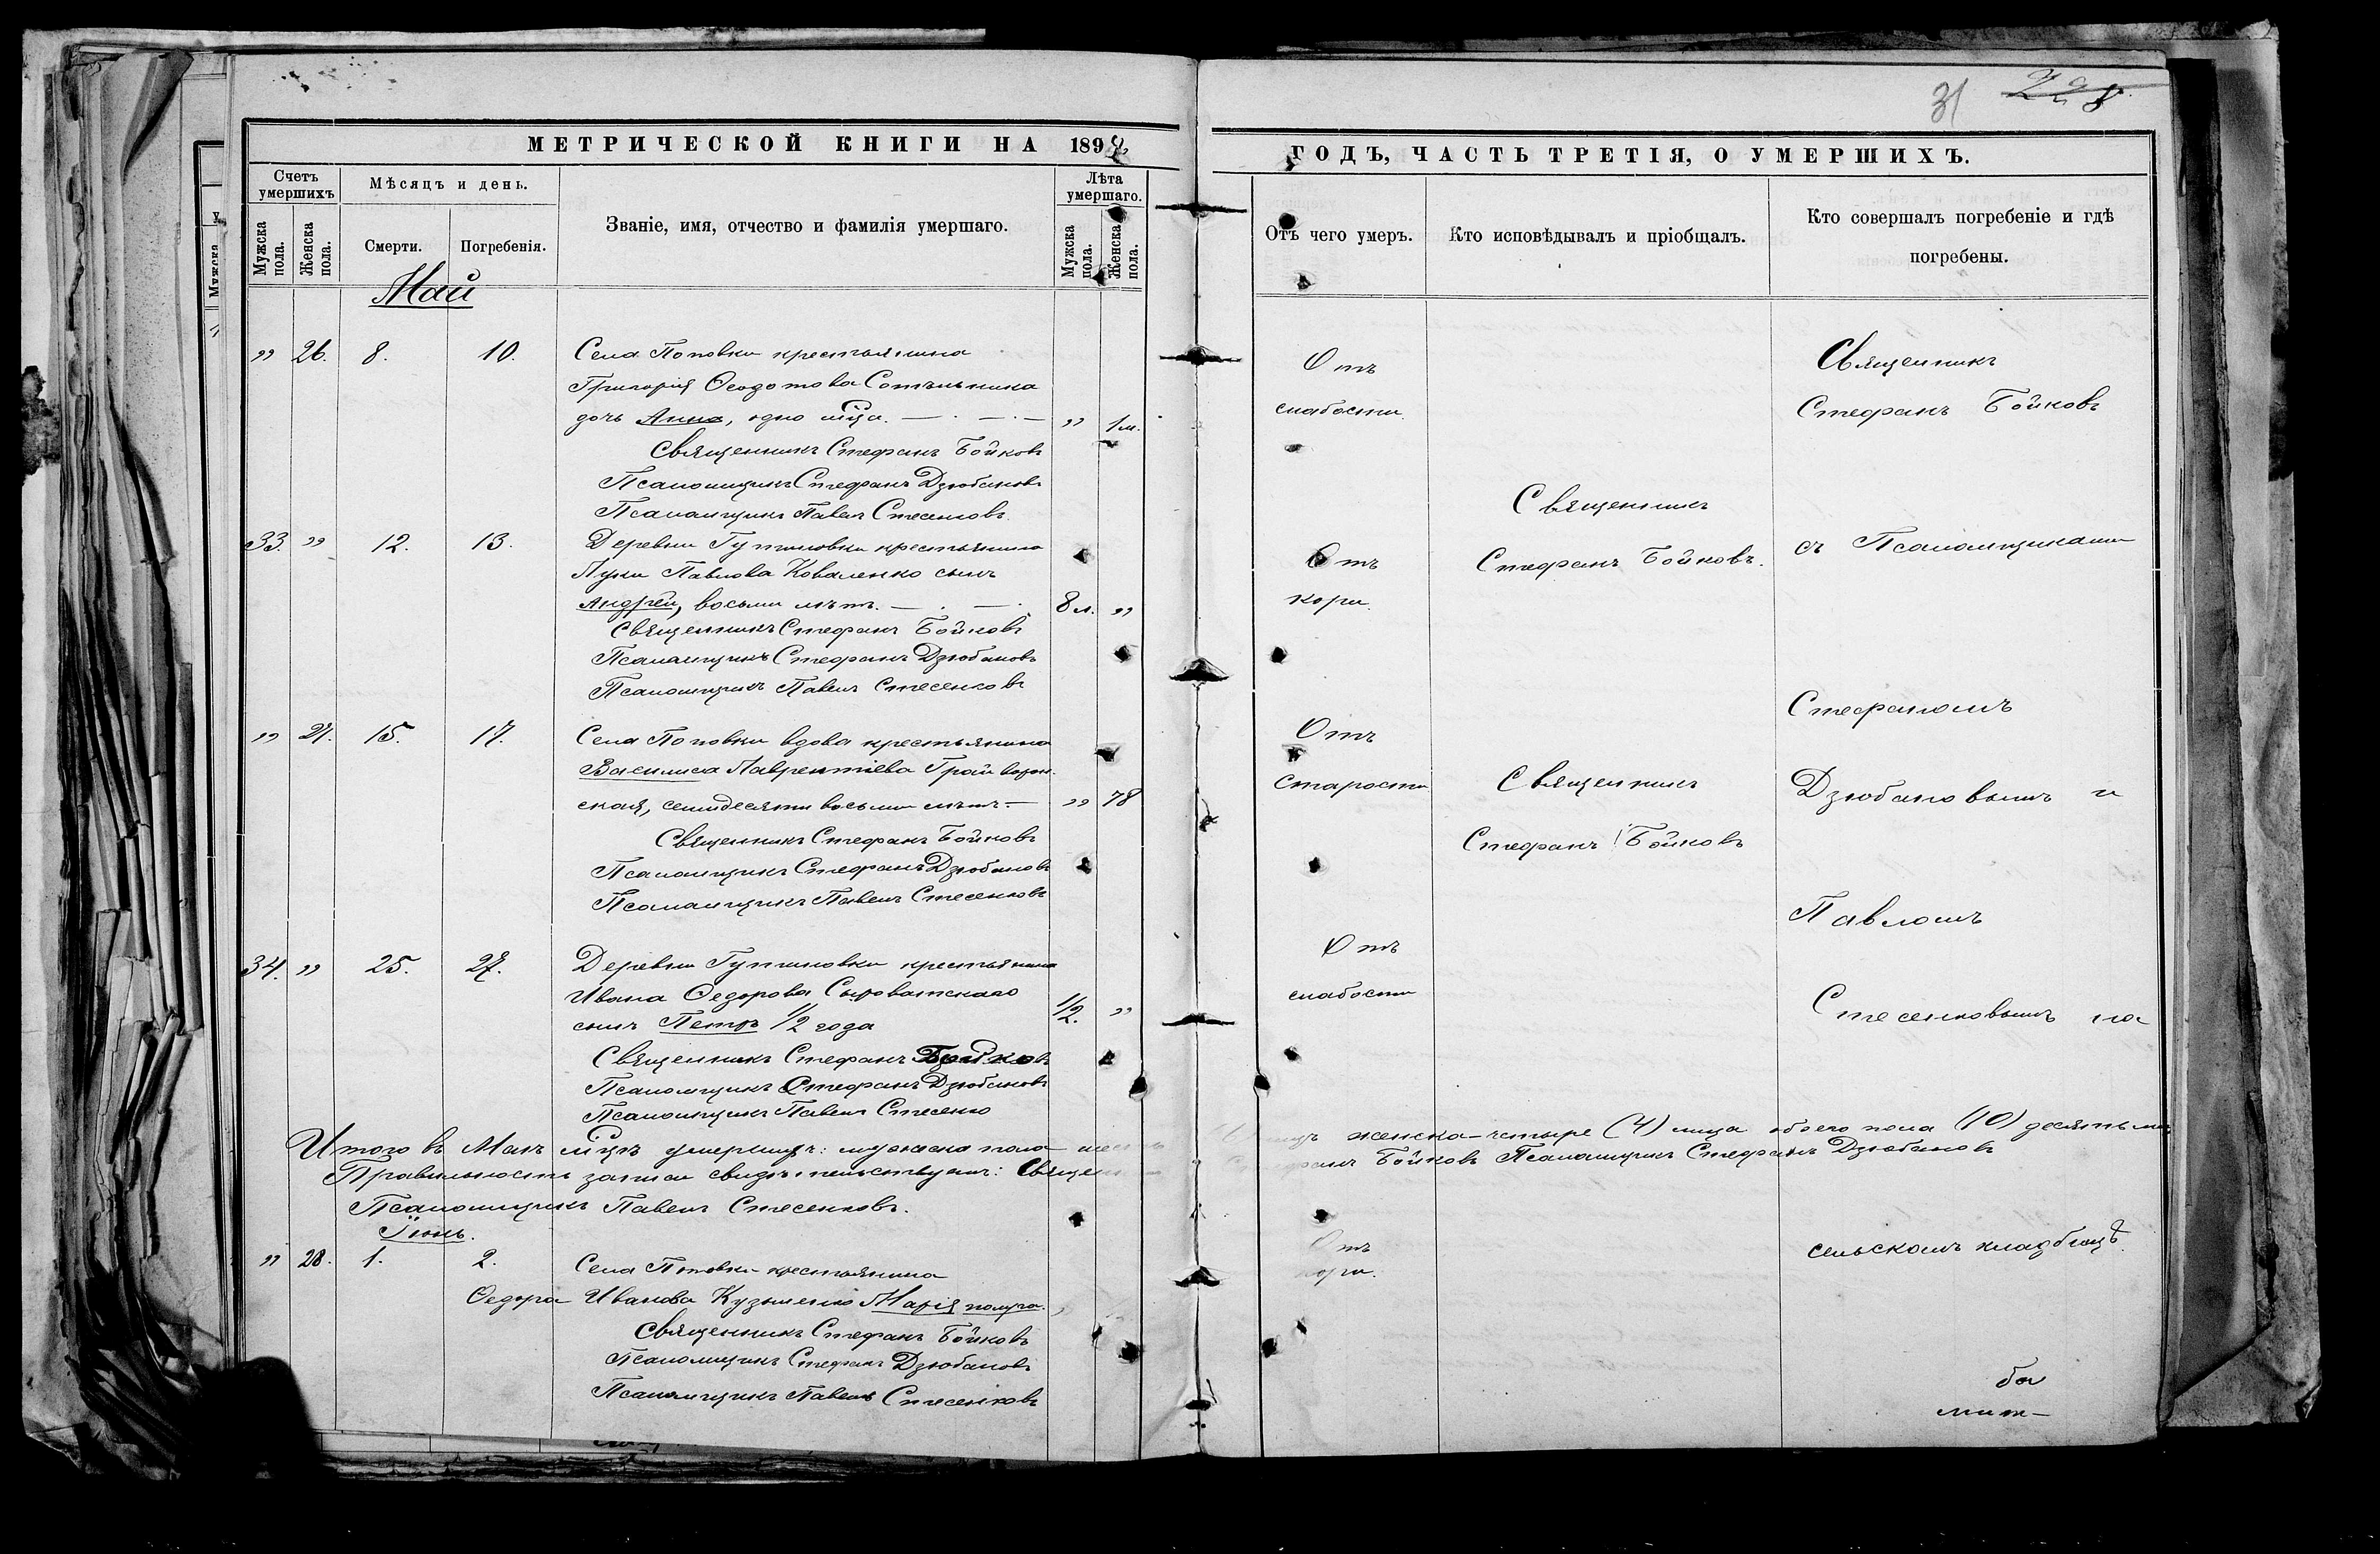 31
МЕТРИЧЕСКОЙ КНИГИ НА 189
ГОДЪ, ЧАСТЬ ТРЕТІЯ, О УМЕРШИХЪ.
Счетъ умершихъ
Мужска пола.
Женска пола.
Мѣсяцъ и день.
Смерти.
Погребенія.
Званіе, имя, отчество и фамилія умершаго.
Лѣта умершаго.
Мужска пола.
Женска пола.
Отъ чего умеръ.
Кто исповѣдывалъ и пріобщалъ.
Кто совершалъ погребеніе и гдѣ
погребены.
Май
„ 26. 8. 10. Села Поповки крестьянина
Григорія Ѳеодотова Сотъльника
дочь Анна, одно мца. „ 1 м.
Священникъ Стефанъ Бойковъ
Псаломщикъ Стефанъ Дзюбановъ
Псаломщикъ Павелъ Стесенковъ.
Отъ
слабости
Священникъ
Стефанъ Бойковъ
33. „ 12. 13. Деревни Гутниловки крестьянина
Луки Павлова Коваленко сынъ
Андрей, восьми лѣтъ. 8 л. „
Священникъ Стефанъ Бойковъ
Псаломщикъ Стефанъ Дзюбановъ
Псаломщикъ Павелъ Стесенковъ
Отъ
кори.
Священникъ
Стефанъ Бойковъ.
съ Псаломщиками
„ 27. 15. 17. Села Поповки вдова крестьянина
Василиса Лаврентіева Грайворон-
ская, семидесяти восьми лѣтъ „ 78
Священникъ Стефанъ Бойковъ
Псаломщикъ Стефанъ Дзюбановъ
Псаломщикъ Павелъ Стесенковъ
Отъ
старости
Священникъ
Стефанъ Бойковъ
Стефаномъ
Дзюбановымъ и
Павломъ
34. „ 25. 27. Деревни Гутниловки крестьянина
Ивана Ѳедорова Сыроватскаго
сынъ Петръ 1/2 года 1/2. „
Священникъ Стефанъ Бойковъ
Псаломщикъ Стефанъ Дзюбановъ
Псаломщикъ Павелъ Стесенко
Отъ
слабости
Стесенковымъ на
Итого въ Маѣ мцѣ умершихъ: мужска пола женска – четыре (4) лица обоего пола (10) десять лицъ
Правильность записи свидѣтельствуемъ: Священ Бойковъ Псаломщикъ Стефанъ Дзюбановъ
Псаломщикъ Павелъ Стесенковъ.
Іюнь.
„ 28. 1. 2. Села Поповки крестьянина
Ѳедора Ивановa Кузьменко Марія полуго.
Священникъ Стефанъ Бойковъ
Псаломщикъ Стефанъ Дзюбановъ
Псаломщикъ Павелъ Стесенковъ
Отъ
кори.
сельскомъ кладбищѣ.